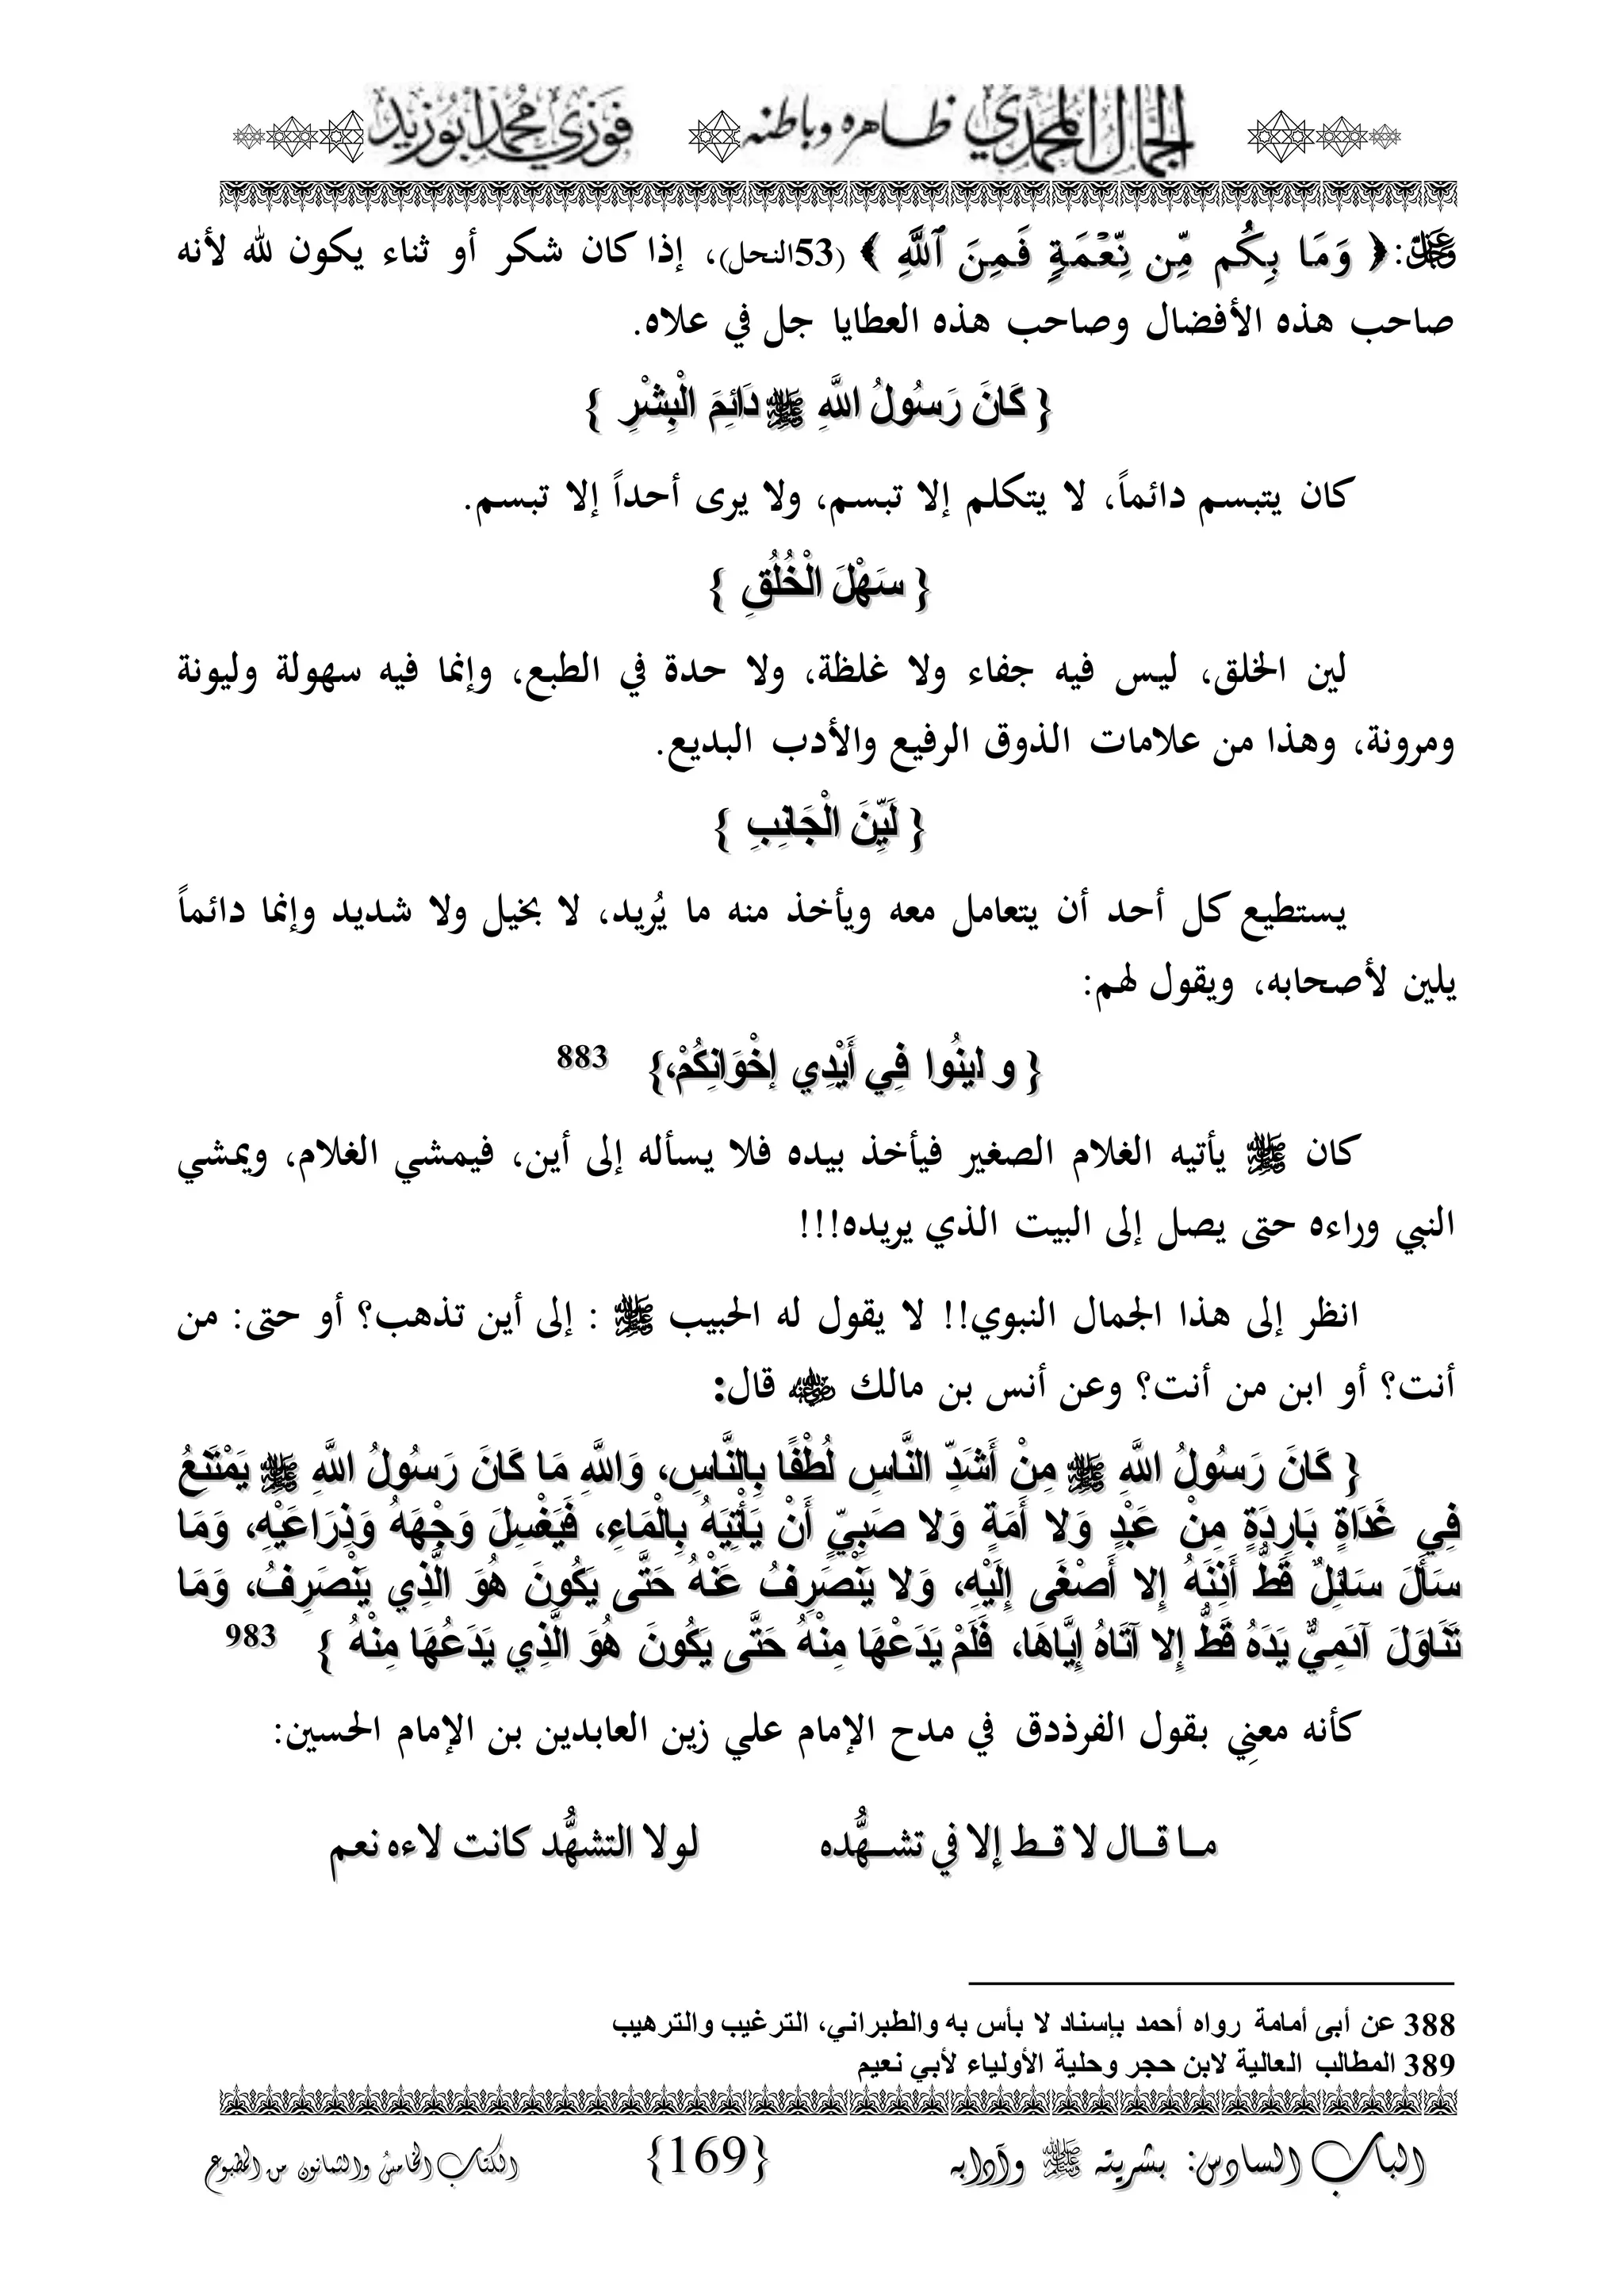 الجمال المحمدي ظاهره وباطنه فوزي محمد أبوزيد
ﷻ: ﴿ وَمَا بِكُم مِّن نِّعْمَةٍ فَمِنَ ٱللَّهِ ﴾ (53النحل)، إذا كان شكر أو ثناء يكون لله لأنه
صاحب هذه الأفضال وصاحب هذه العطايا جل في علاه.
{ كَانَ رَسُولُ اللَّهِ ﷺ دَائِمَ الْبِشْرِ }
كان يتبسم دائماً، لا يتكلم إلا تبسم، ولا يرى أحداً إلا تبسم.
{ سَهْلَ الْخُلُقِ }
لين الخلق، ليس فيه جفاء ولا غلظة، ولا حدة في الطبع، وإنما فيه سهولة وليونة
ومرونة، وهذا من علامات الذوق الرفيع والأدب البديع.
{ لَيِّنَ الْجَانِبِ }
يستطيع كل أحد أن يتعامل معه ويأخذ منه ما يُريد، لا بخيل ولا شديد وإنما دائماً
يلين لأصحابه، ويقول لهم:
{ و لينُوا فِي أَيْدِي إخْوَانِكُمْ،} 883
كان ﷺ يأتيه الغلام الصغير فيأخذ بيده فلا يسأله إلى أين، فيمشي الغلام، ويمشي
النبي وراءه حتى يصل إلى البيت الذي يريده!!!
انظر إلى هذا الجمال النبوي!! لا يقول له الحبيب ﷺ : إلى أين تذهب؟ أو حتى: من
أنت؟ أو ابن من أنت؟ وعن أنس بن مالك رضي الله عنه قال:
{ كَانَ رَسُولُ اللَّهِ ﷺ مِنْ أَشَدِّ النَّاسِ لُطْفًا بِالنَّاسِ، وَاللَّهِ مَا كَانَ رَسُولُ اللَّهِ ﷺ يَمْتَنِعُ
فِي غَدَاةٍ بَارِدَةٍ مِنْ عَبْدٍ وَلا أَمَةٍ وَلا صَبِيٍّ أَنْ يَأْتِيَهُ بِالْمَاءِ، فَيَغْسِلَ وَجْهَهُ وَذِرَاعَيْهِ، وَمَا
سَأَلَ سَائِلٌ قَطُّ أُذُنَهُ إِلا أَصْغَى إِلَيْهِ، وَلا يَنْصَرِفُ عَنْهُ حَتَّى يَكُونَ هُوَ الَّذِي يَنْصَرِفُ، وَمَا
تَنَاوَلَ آدَمِيٌّ يَدَهُ قَطُّ إِلا آتَاهُ إِيَّاهَا، فَلَمْ يَدَعْهَا مِنْهُ حَتَّى يَكُونَ هُوَ الَّذِي يَدَعُهَا مِنْهُ } 983
كأنه معنِي بقول الفرذدق في مدح الإمام علي زين العابدين بن الإمام الحسين:
مـا قـال لا قـط إلا في تشـهُّده لولا التشهُّد كانت لاءه نعم
388 عن أبى أمامة رواه أحمد بإسناد لا بأس به والطبراني، الترغيب والترهيب
389 المطالب العالية لابن حجر وحلية الأولياء لأبي نعيم
الباب السادس: بشريته ﷺ وآدابه {169} الكتاب الخامس والثمانون من المطبوع